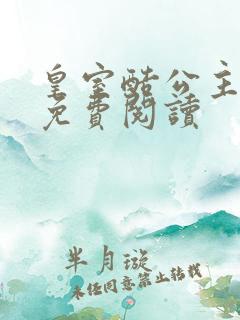 皇室酷公主
免費閱讀
半月璇
未經同意禁止轉載